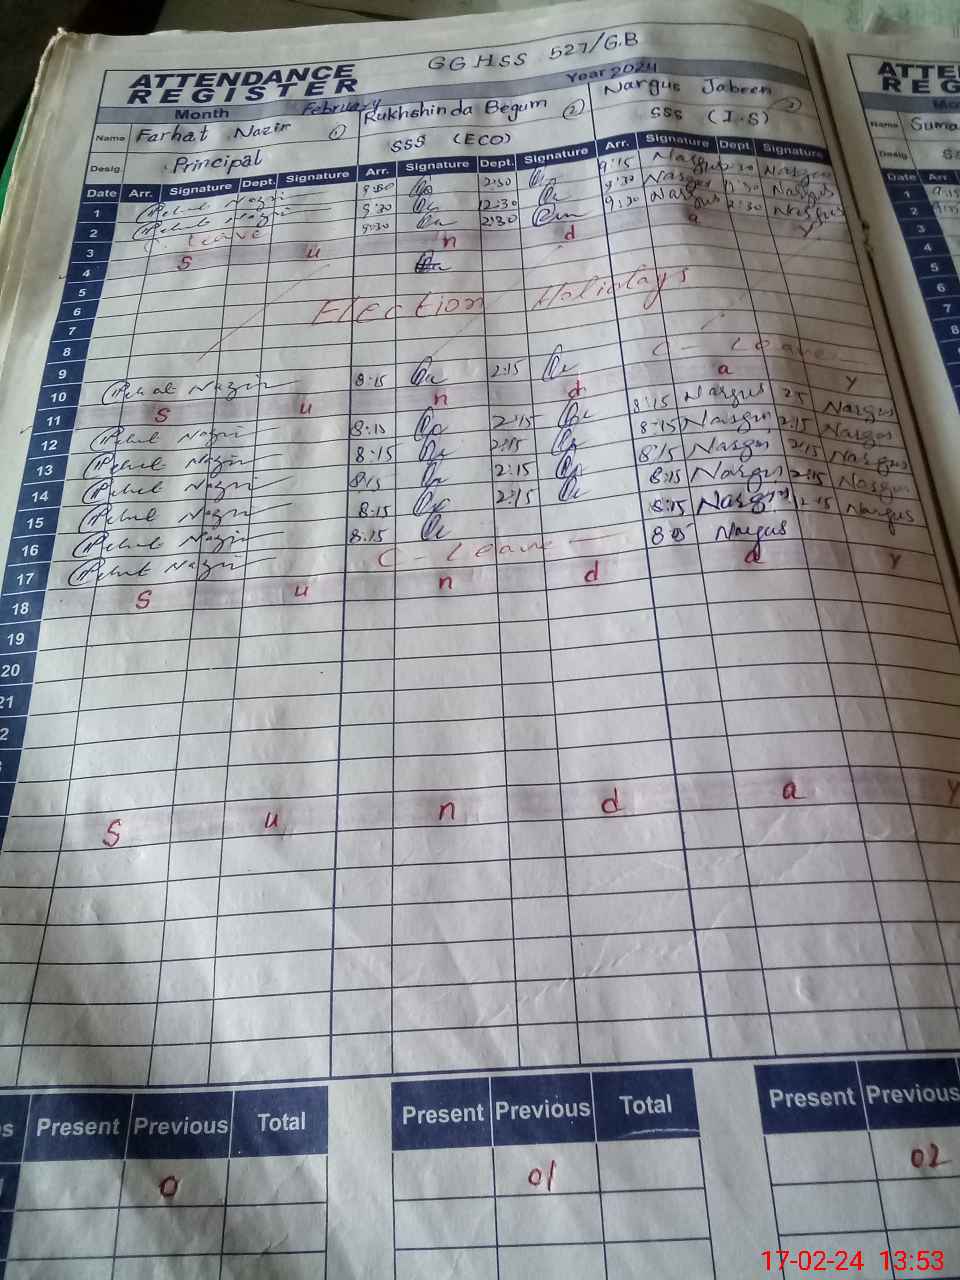 GGHSS 527/G.B
ATTENDANCE
REGISTER
Month February Year 2024
Name Farhat Nazir ① Rukhshinda Begum ② Nargus Jabeen ③
Desig. Principal SSS (ECO) SSS (I.S)
Date Arr. Signature Dept. Signature Arr. Signature Dept. Signature Arr. Signature Dept. Signature
1 2:30 9:15 Nargus Nargus
2 9:30 12:30 9:30 Nargus Nargus
3 Leave 9:30 2:30 9:30 Nargus 2:30 Nargus
4 S u n d a y
5
6 Election Holidays
7
8
9 C - Leave
10 Nazir 8:15 2:15
11 S u n d a y
12 Nazir 8:15 2:15 8:15 Nargus Nargus
13 Nazir 8:15 2:15 8:15 Nargus 2:15 Nargus
14 Nazir 8:15 2:15 8:15 Nargus 2:15 Nargus
15 Nazir 8:15 2:15 8:15 Nargus 2:15 Nargus
16 Nazir 8:15 8:15 Nargus 2:15 Nargus
17 Nazir C - Leave Nargus
18 S u n d a y
19
20
21
2
S u n d a y
Present Previous Total Present Previous Total Present Previous
0 01 02
ATTE
REG
Mo
Name Suma
Desig.
Date Arr.
1 9:15
2
3
4
5
6
7
8
17-02-24 13:53